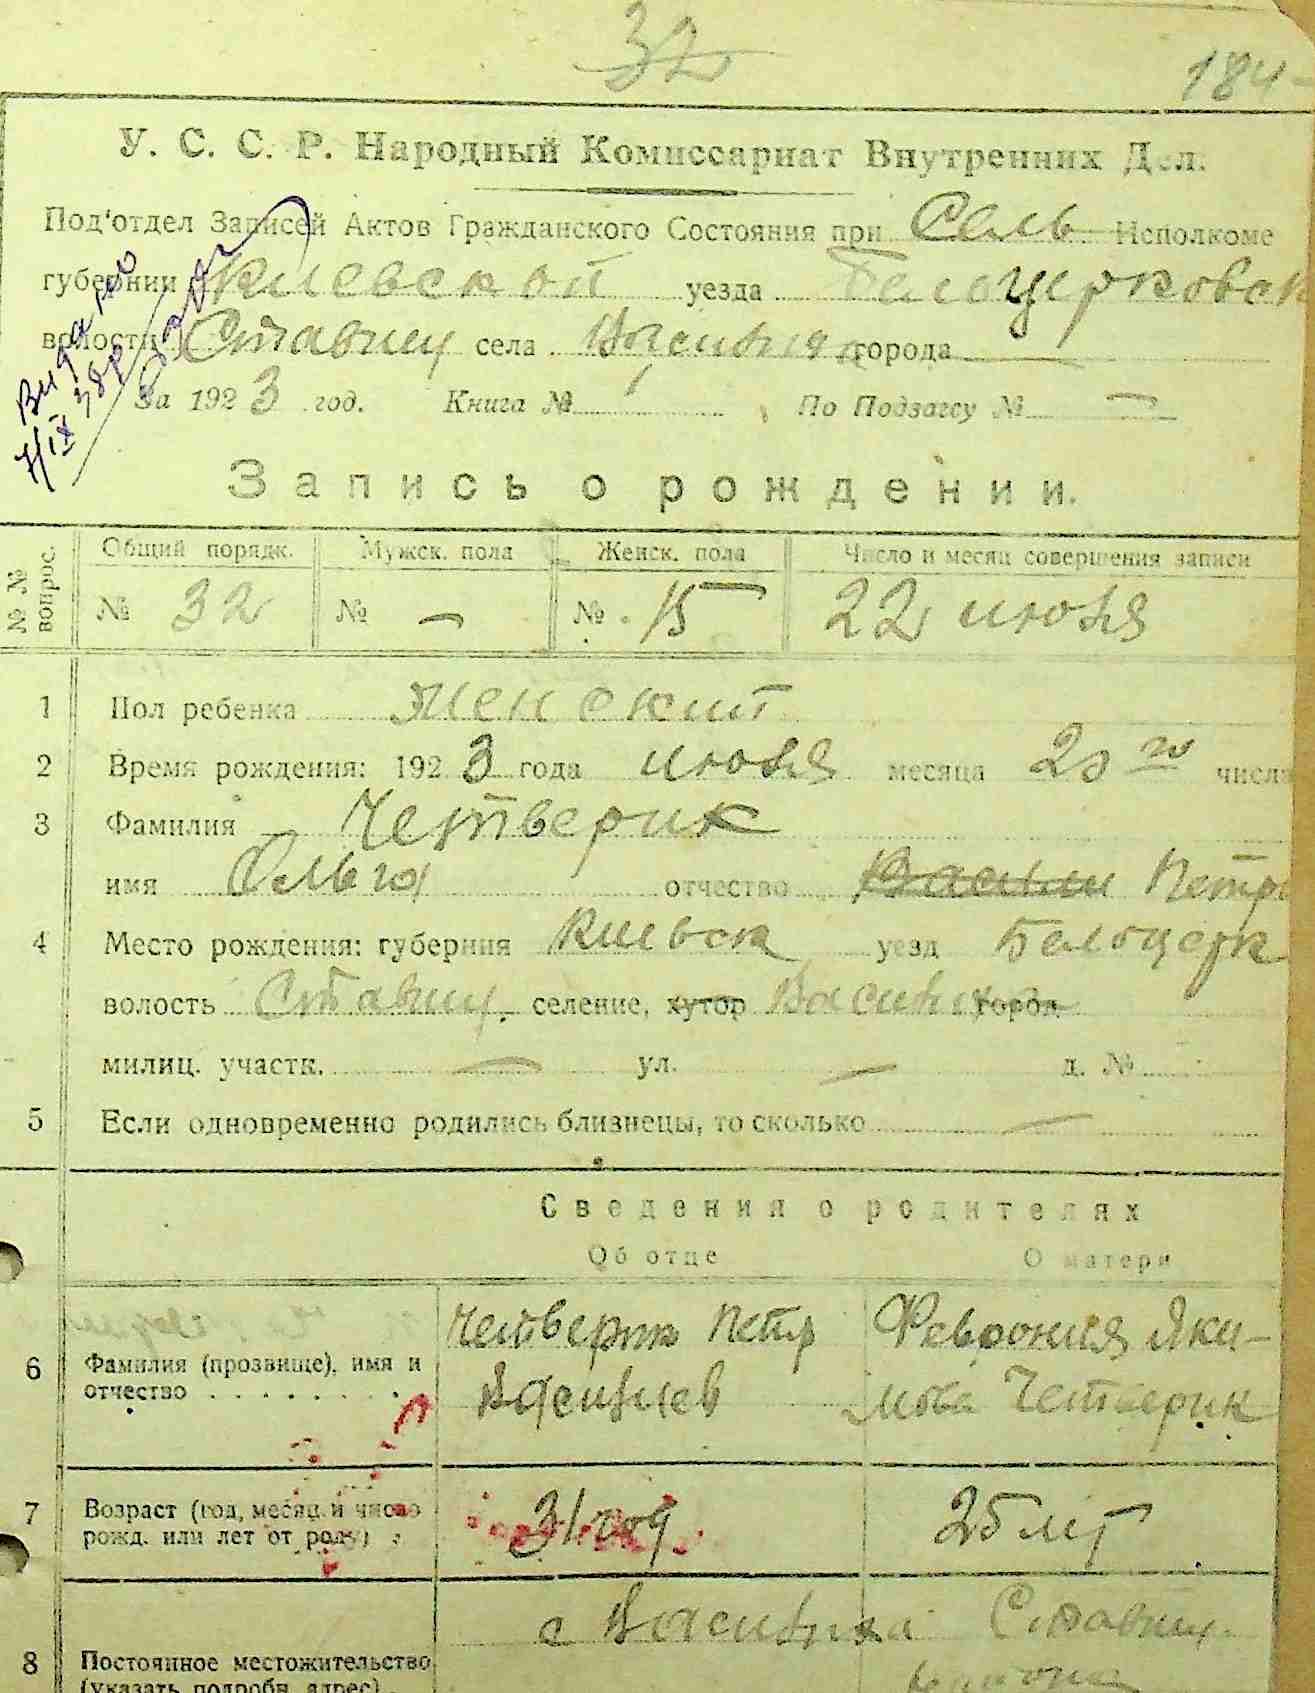 32
184
У. С. С. Р. Народный Комиссариат Внутренних Дел.
Под'отдел Записей Актов Гражданского Состояния при Сель Исполкоме
губернии Киевской уезда Белоцерковск
волости Ставищ села города
Видано
7/IX 38р
За 1923 год. Книга № По Подзагсу № —
Запись о рождении.
№ № вопрос. Общий порядк. Мужск. пола Женск. пола Число и месяц совершения записи
№ 32 № — № 15 22 июля
1 Пол ребенка женский
2 Время рождения: 1923 года июля месяца 20 го числа
3 Фамилия Четверик
имя Ольга отчество Васили Петр
4 Место рождения: губерния Киевск уезд Белоцерк
волость Ставищ. селение, хутор город
милиц. участк. — ул. — д. №
5 Если одновременно родились близнецы, то сколько —
Сведения о родителях
Об отце О матери
6 Фамилия (прозвище), имя и отчество Четверик Петр Феврония Яки-
Васильев мова Четверик
7 Возраст (год, месяц и число рожд. или лет от роду) 31 год 25 лет
8 Постоянное местожительство (указать подробн. адрес) с Ставищ.